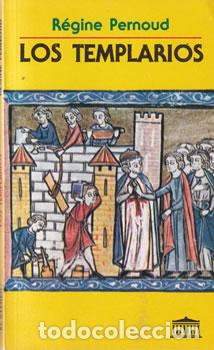 Régine Pernoud
LOS TEMPLARIOS
todocoleccion